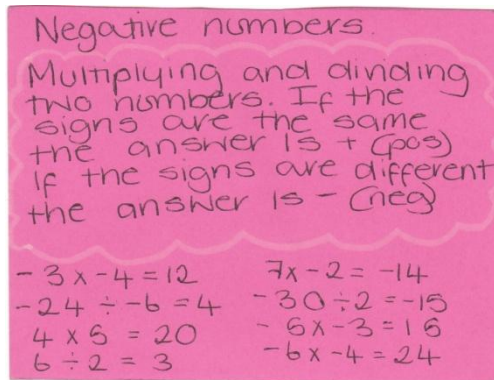 Negative numbers.
Multiplying and dinding
two numbers. If the
signs are the same
the answer is + (pos)
If the signs are different
the answer is - (neg)
- 3 x - 4 = 12
- 24 ÷ - 6 = 4
4 x 5 = 20
6 ÷ 2 = 3
7 x - 2 = -14
- 30 ÷ 2 = -15
- 5 x - 3 = 15
- 6 x - 4 = 24